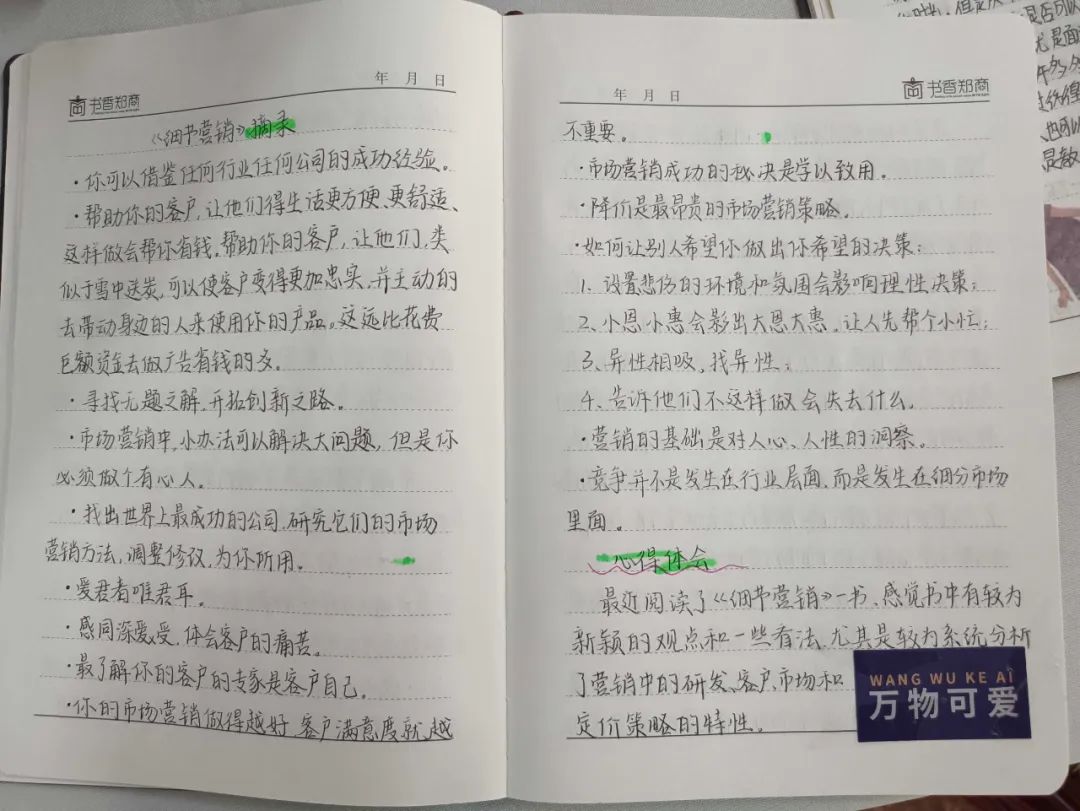 年 月 日
书香郑商
《细节营销》摘录
·你可以借鉴任何行业任何公司的成功经验。
·帮助你的客户,让他们得生活更方便、更舒适、
这样做会帮你省钱。帮助你的客户,让他们,类
似于雪中送炭,可以使客户变得更加忠实,并主动的
去带动身边的人来使用你的产品。这远比花费
巨额资金去做广告省钱的多。
·寻找无题之解,开拓创新之路。
·市场营销中,小办法可以解决大问题,但是你
必须做个有心人。
·找出世界上最成功的公司,研究它们的市场
营销方法,调整修改,为你所用。
·爱君者唯君耳。
·感同深爱受,体会客户的痛苦。
·最了解你的客户的专家是客户自己。
·你的市场营销做得越好,客户满意度就越
年 月 日
书香郑商
不重要。
·市场营销成功的秘决是学以致用。
·降价是最昂贵的市场营销策略。
·如何让别人希望你做出你希望的决策:
1、设置悲伤的环境和氛围会影响理性决策;
2、小恩小惠会影出大恩大惠,让人先帮个小忙;
3、异性相吸,找异性;
4、告诉他们不这样做会失去什么。
·营销的基础是对人心、人性的洞察。
·竞争并不是发生在行业层面,而是发生在细分市场
里面。
心得体会
最近阅读了《细节营销》一书、感觉书中有较为
新颖的观点和一些看法,尤其是较为系统分析
了营销中的研发、客户、市场和
定价策略的特性。
WANG WU KE AI
万物可爱